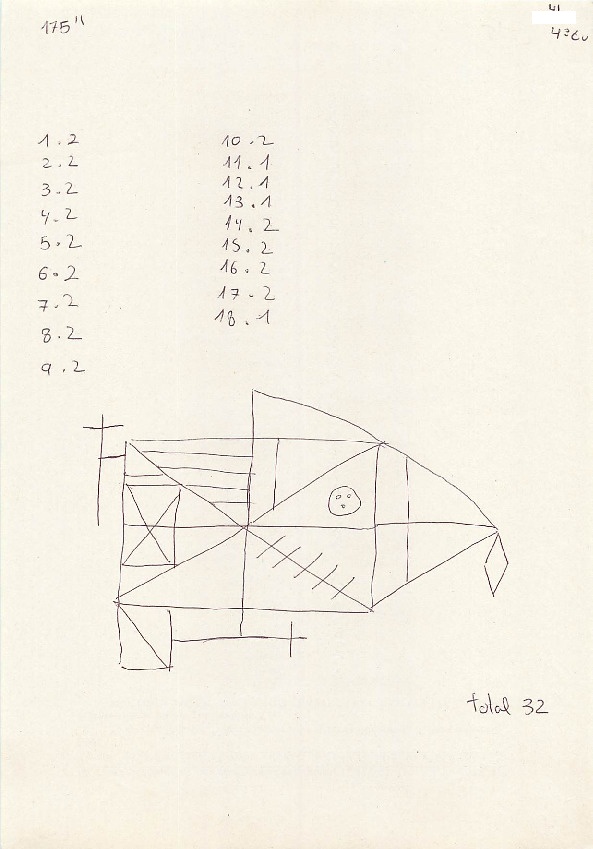 175"
1.2
2.2
3.2
4.2
5.2
6.2
7.2
8.2
9.2
10.2
11.1
12.1
13.1
14.2
15.2
16.2
17.2
18.1
total 32